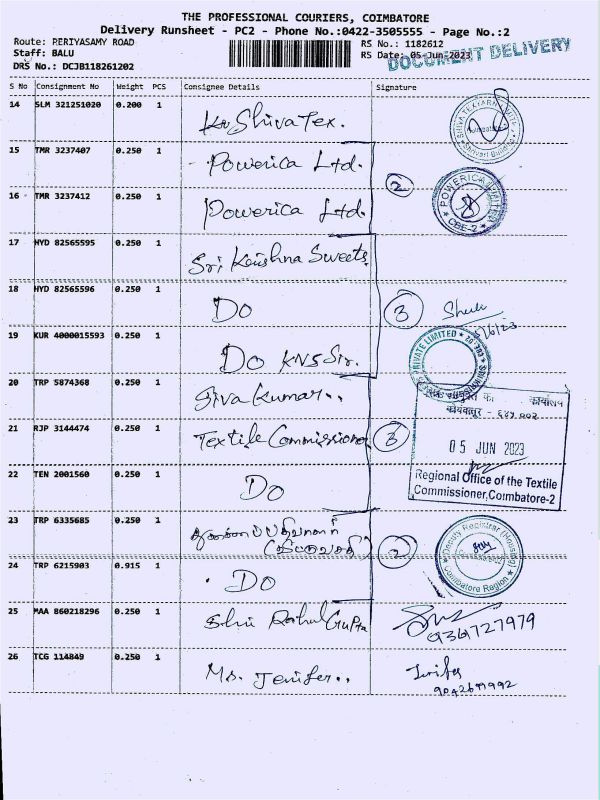 THE PROFESSIONAL COURIERS, COIMBATORE
Delivery Runsheet - PC2 - Phone No.:0422-3505555 - Page No.:2
Route: PERIYASAMY ROAD
RS No.: 1182612
Staff: BALU
RS Date: 05-Jun-2023
DOCUMENT DELIVERY
DRS No.: DCJB118261202
S No Consignment No Weight PCS Consignee Details Signature
14 SLM 321251020 0.200 1 Kr Shiva Tex.
15 TMR 3237407 0.250 1 Powerica Ltd.
2
POWERICA LIMITED
CBE-2
16 TMR 3237412 0.250 1 Powerica Ltd.
17 HYD 82565595 0.250 1 Sri Krishna Sweets
18 HYD 82565596 0.250 1 Do
3
5/6/23
19 KUR 4000015593 0.250 1 Do KNS Sir.
PRIVATE LIMITED
20 TRP 5874368 0.250 1 Siva Kumar..
का कार्यालय
21 RJP 3144474 0.250 1 Textile Commissioner
3
05 JUN 2023
Regional Office of the Textile
Commissioner, Coimbatore-2
22 TEN 2001560 0.250 1 Do
23 TRP 6335685 0.250 1
2
Deputy Registrar (Housing)
Coimbatore Region
24 TRP 6215903 0.915 1 Do
25 MAA 860218296 0.250 1 Shri Rahul Gupta
26 TCG 114849 0.250 1 Ms. Jenifer..
Jenifer